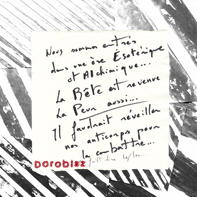 Nous sommes entrés
dans une ère Esotérique
et Alchimique...
La Bête est revenue
La Peur aussi...
Il faudrait réveiller
nos anticorps pour
la combattre...
Dorobiaz